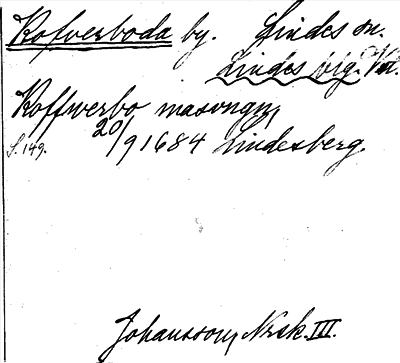 Kofverboda by. Lindes sn.
Lindes blg.
Koffwerbo masvngn,
S. 149. 20/9 1684 Lindesberg.
Johansson, Nrsk. III.